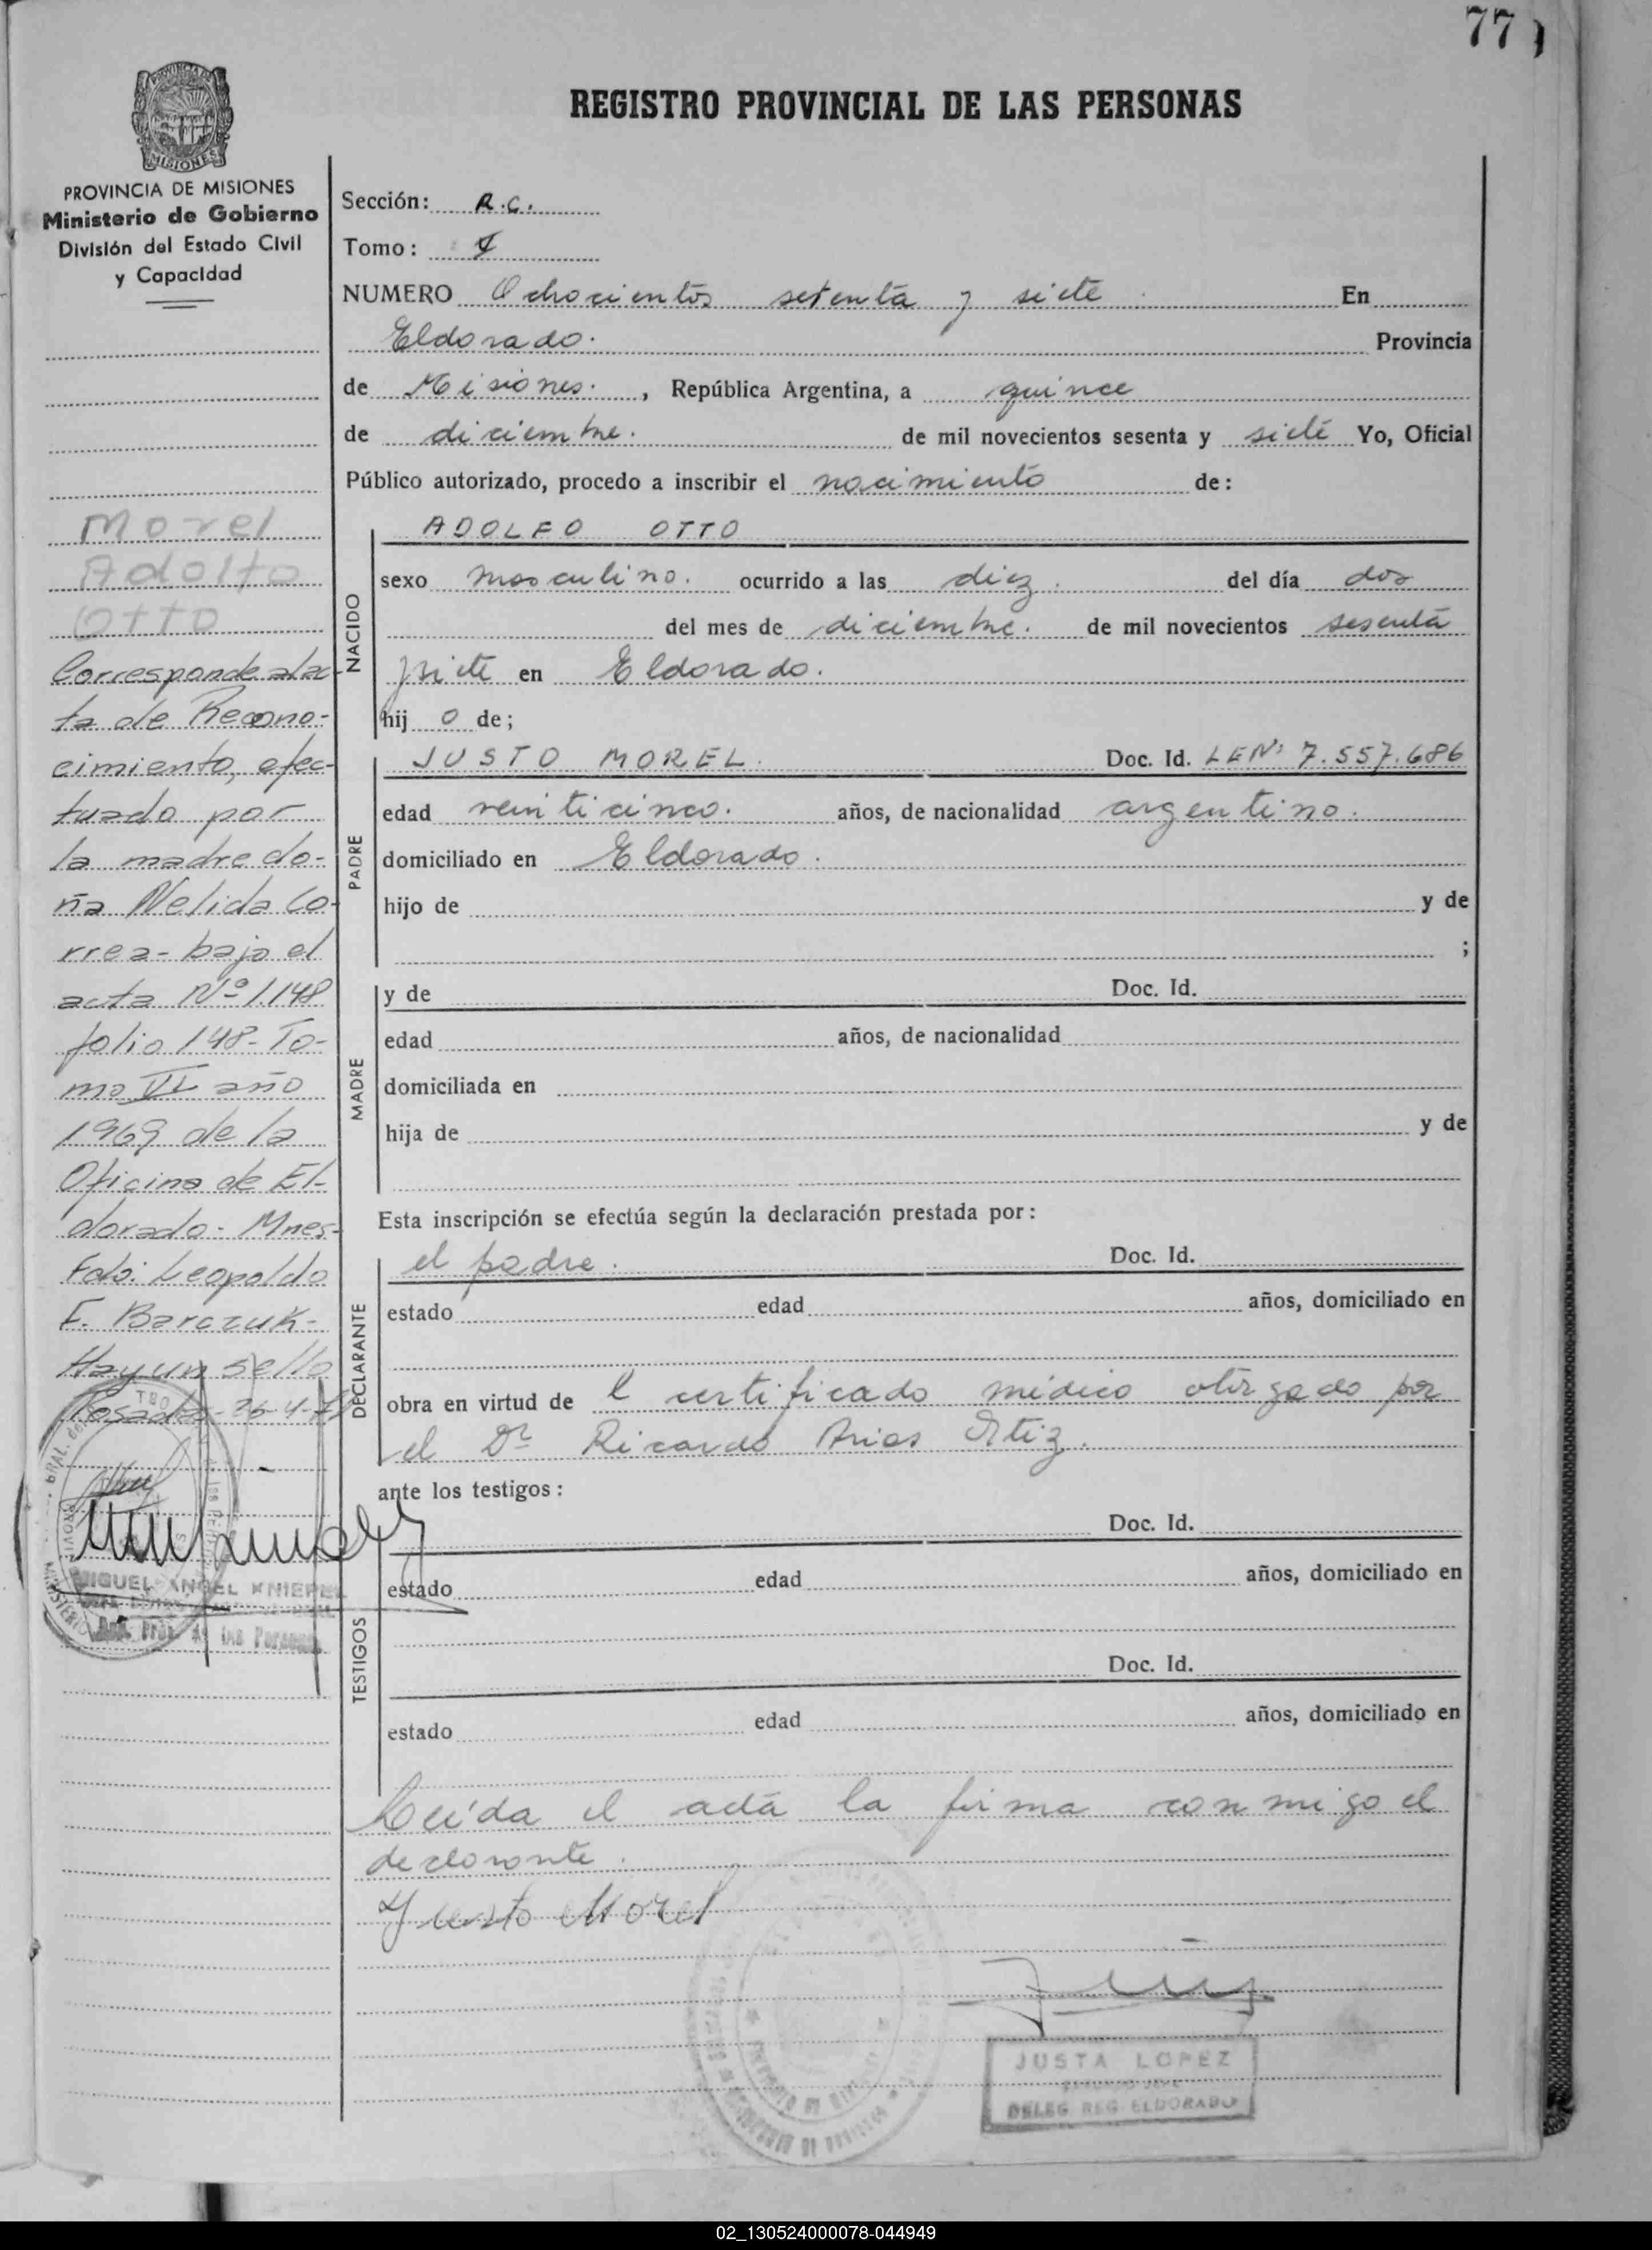 77
REGISTRO PROVINCIAL DE LAS PERSONAS
MISIONES
PROVINCIA DE MISIONES
Ministerio de Gobierno
División del Estado Civil
y Capacidad
Morel
Adolfo
Otto
Corresponde al ac-
ta de Recono-
cimiento, efec-
tuado por
la madre do-
ña Nelida Co-
rrea - bajo el
acta Nº 1.148
folio 148 - To-
mo VI año
1969 de la
Oficina de El-
dorado - Mnes-
Fdo: Leopoldo
F. Barczuk -
Hay un sello
Posadas - 26-4-
MIGUEL ANGEL KNIEPEL
Sección: R.C.
Tomo:
NUMERO Ochocientos setenta y siete En
Eldorado. Provincia
de Misiones. , República Argentina, a quince
de diciembre. de mil novecientos sesenta y siete Yo, Oficial
Público autorizado, procedo a inscribir el nacimiento de:
NACIDO
ADOLFO OTTO
sexo masculino. ocurrido a las diez. del día dos
del mes de diciembre. de mil novecientos sesenta
y siete en Eldorado.
hij o de;
PADRE
JUSTO MOREL. Doc. Id. LENº 7.557.686
edad veinticinco. años, de nacionalidad argentino.
domiciliado en Eldorado.
hijo de y de
;
MADRE
y de Doc. Id.
edad años, de nacionalidad
domiciliada en
hija de y de
Esta inscripción se efectúa según la declaración prestada por:
DECLARANTE
el padre. Doc. Id.
estado edad años, domiciliado en
obra en virtud de l certificado médico otorgado por
el Dr Ricardo Arios Ortiz.
ante los testigos:
TESTIGOS
Doc. Id.
estado edad años, domiciliado en
Doc. Id.
estado edad años, domiciliado en
Leída el acta la firma conmigo el
declarante.
Justo Morel
JUSTA LOPEZ
DELEG REG ELDORADO
02_130524000078-044949